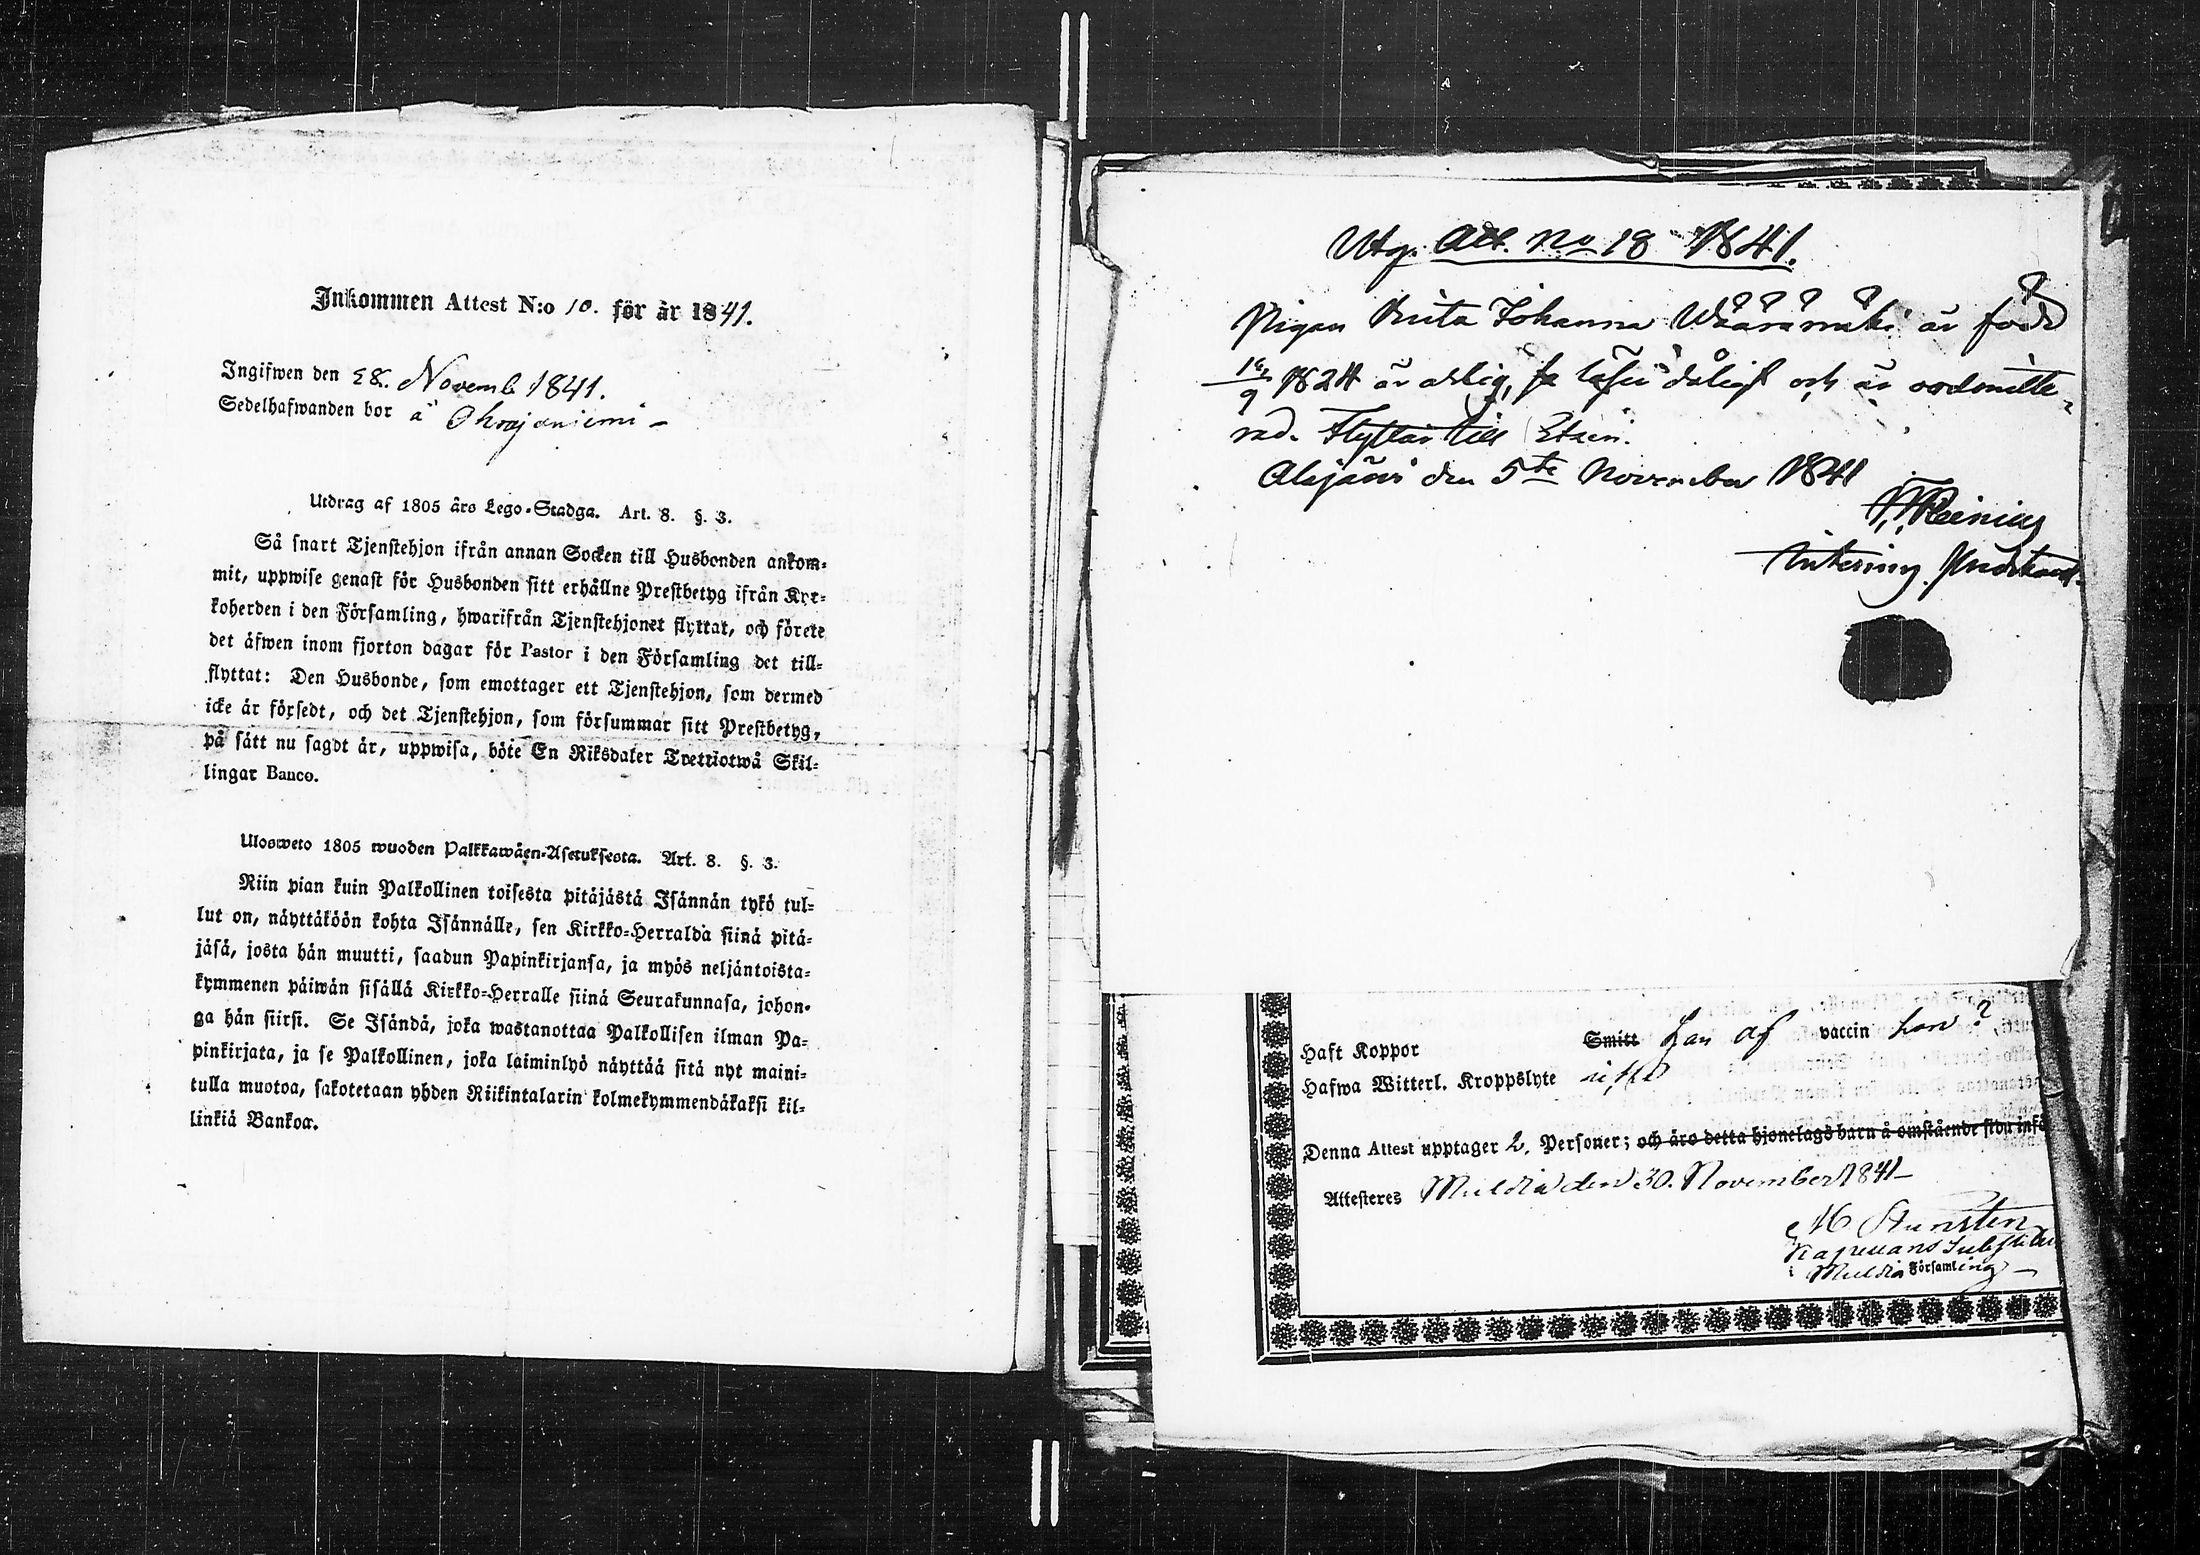 Inkommen Attest N:o 10. för år 1841.
Ingifwen den 28. Novemb 1841.
Sedelhafwanden bor å Ohrajoniemi
Utdrag af 1805 års Lego-Stadga. Art. 8. §. 3.
Så snart Tjenstehjon ifrån annan Socken till Husbonden ankom-
mit, uppwise genast för Husbonden sitt erhållne Prestbetyg ifrån Kyr-
koherden i den Församling, hwarifrån Tjenstehjonet flyttat, och förete
det äfwen inom fjorton dagar för Pastor i den Församling det till-
flyttat: Den Husbonde, som emottager ett Tjenstehjon, som dermed
icke är försedt, och det Tjenstehjon, som försummar sitt Prestbetyg,
på sätt nu sagdt är, uppwisa, böte En Riksdaler Trettiotwå Skil-
lingar Banco.
Ulosweto 1805 wuoden Palkkawäen-Asetuksesta. Art. 8. §. 3.
Niin pian kuin Palkollinen toisesta pitäjästä Isännän tykö tul-
lut on, näyttäköön kohta Isännälle, sen Kirkko-Herralda siinä pitä-
jäsä, josta hän muutti, saadun Papinkirjansa, ja myös neljäntoista-
kymmenen päiwän sisällä Kirkko-Herralle siinä Seurakunnasa, johon-
ga hän siirsi. Se Isändä, joka wastanottaa Palkollisen ilman Pa-
pinkirjata, ja se Palkollinen, joka laiminlyö näyttää sitä nyt maini-
tulla muotoa, sakotetaan yhden Riikintalarin kolmekymmendäkaksi kil-
linkiä Bankoa.
Utg. Att. No 18 1841.
Pigan Brita Johanna Wääramäki är född
1824 är ärlig, läser dåligt och är oadmitte-
rad. Flyttar till Etseri.
Alajärvi den 5te November 1841
Haft Koppor Smitt han af vaccin hon?
Hafwa Witterl. Kroppslyte
Denna Attest upptager 2. Personer; och äro detta hjonelags barn å omstående sida inf
Attesteres Muldia den 30. November 1841
Kapellans Substitut
i Muldia Församling